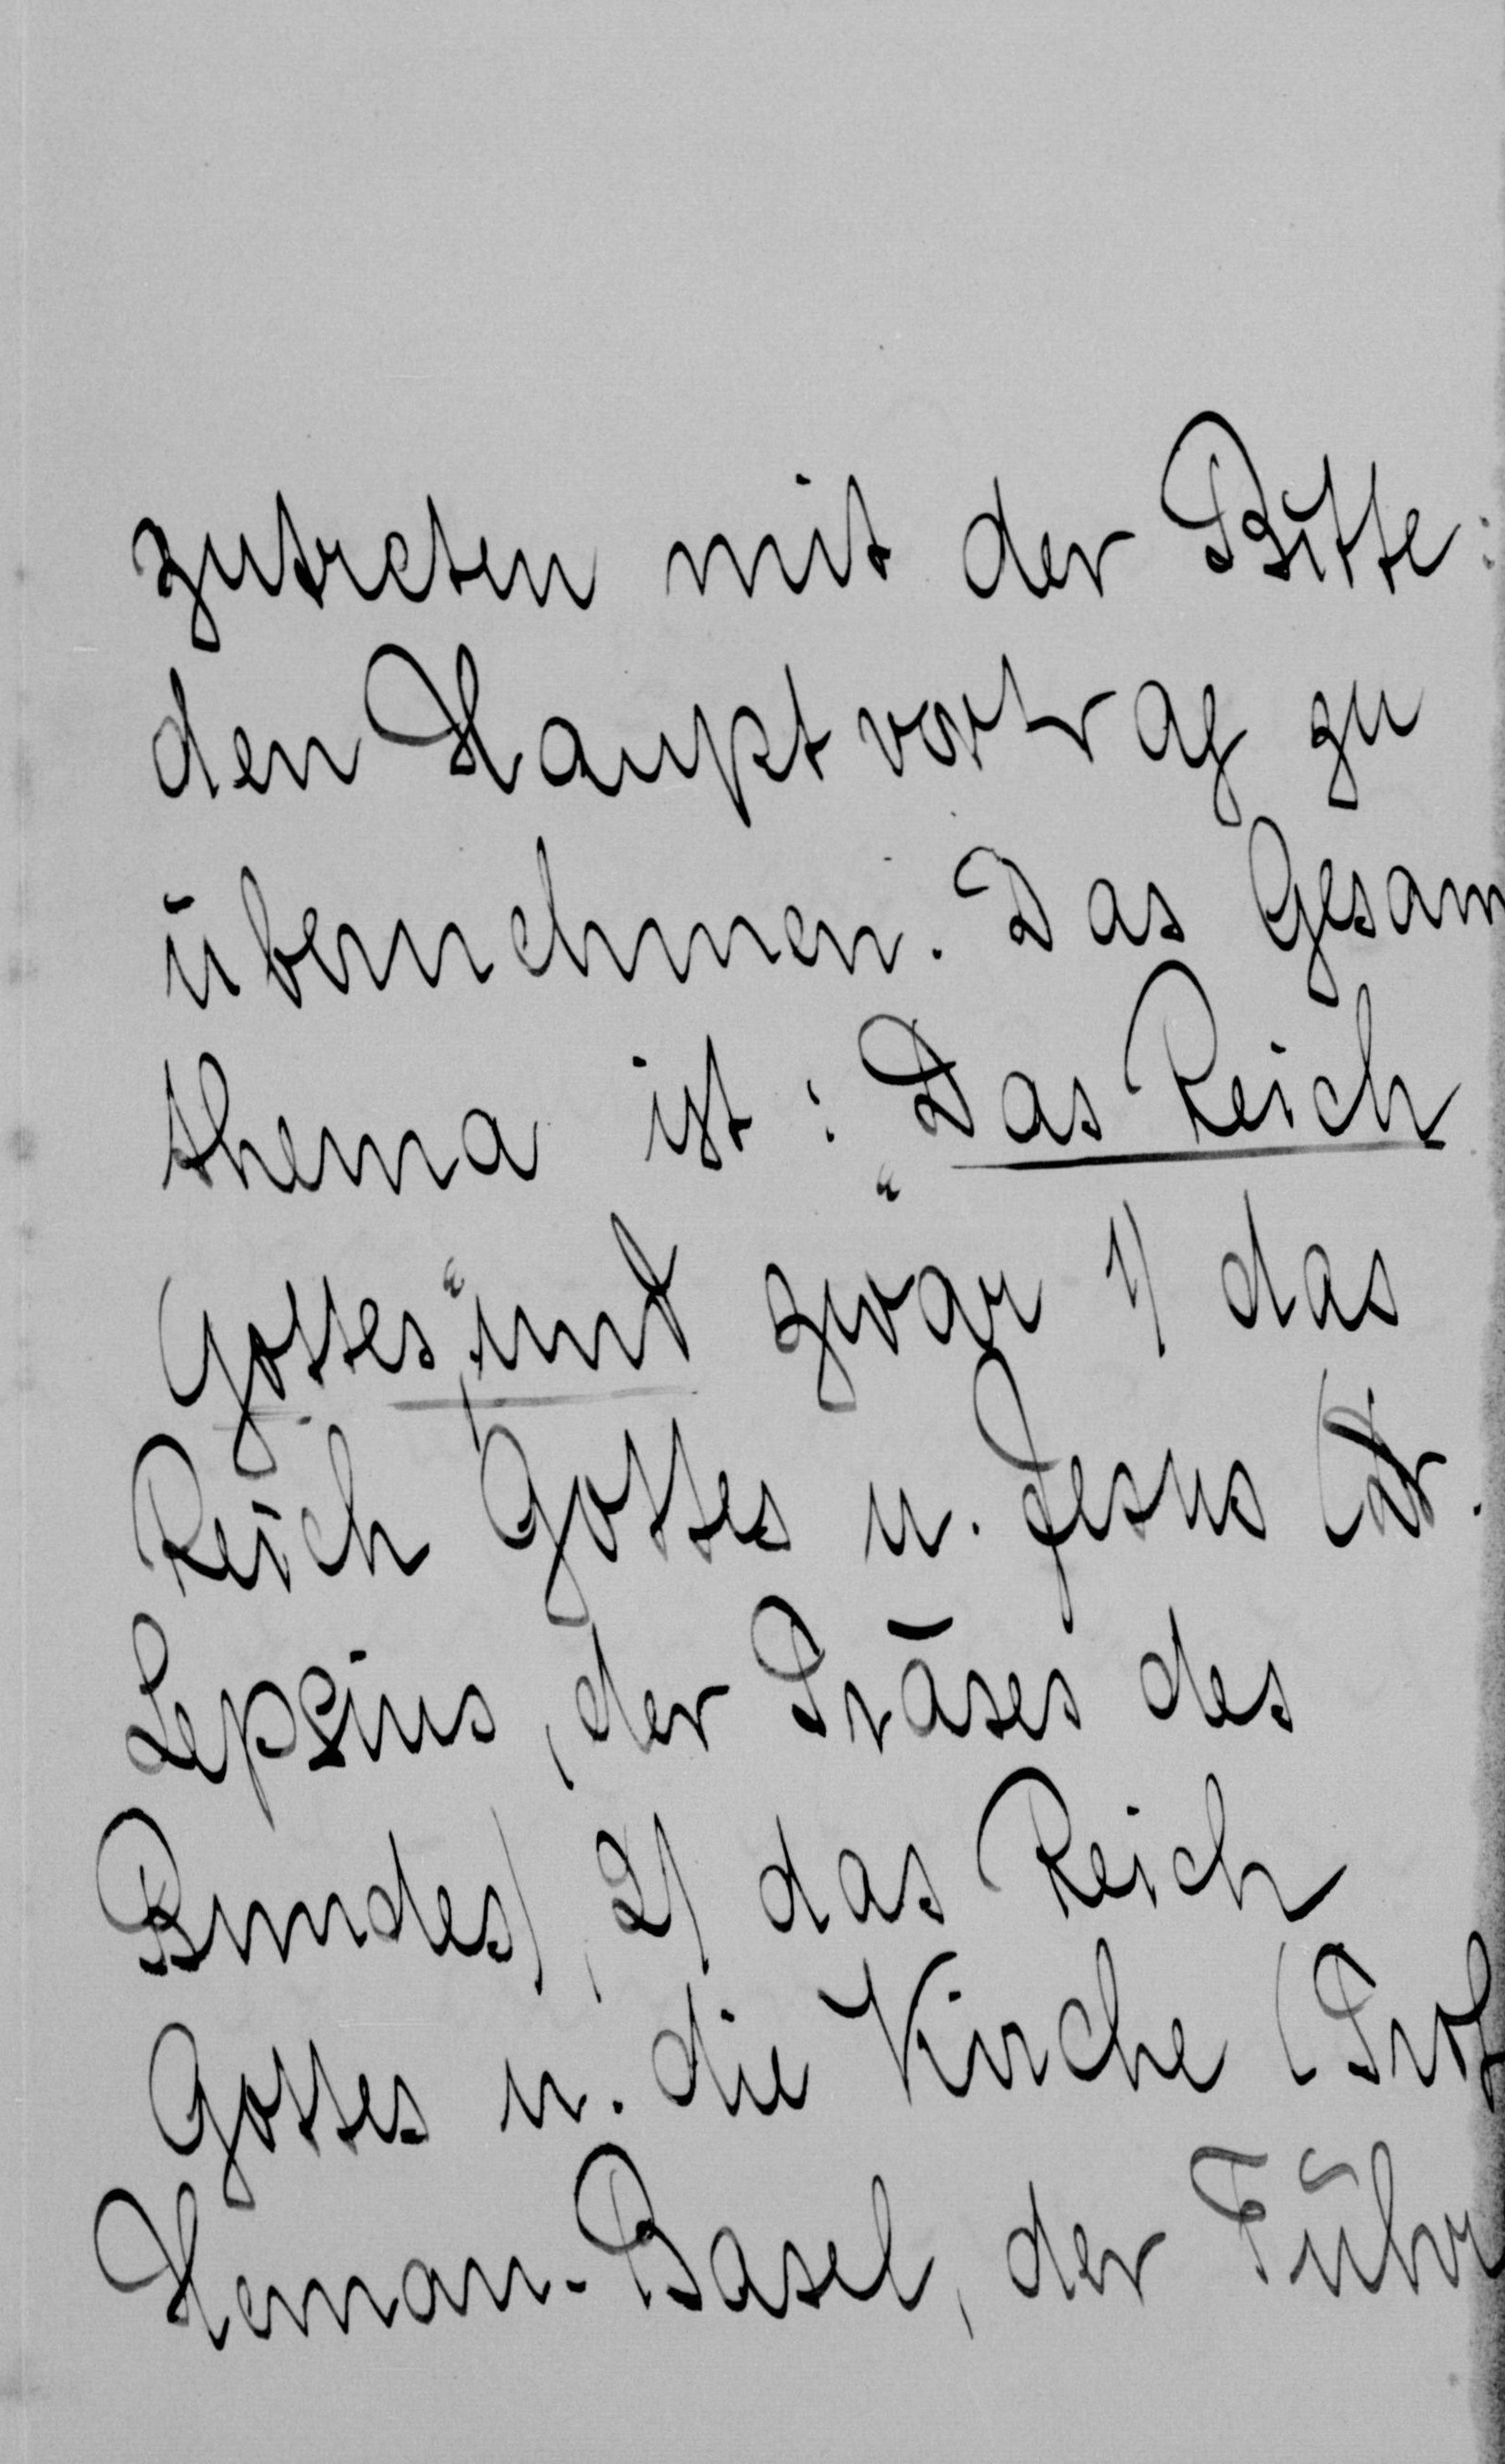 zutreten mit der Bitte:
den Hauptvortrag zu
übernehmen. Das Gesam
thema ist: „Das Reich
Gottes“, und zwar 1) das
Reich Gottes u. Jesus (Dr.
Lepsius, der Präses des
Bundes), 2) das Reich
Gottes u. die Kirche (Prof
Heman-Basel, der Führ